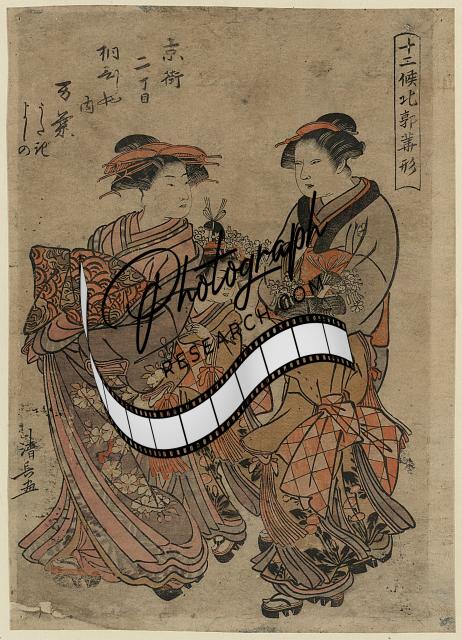 十二候北郭華形
京街
二丁目
内
万葉
清長画
Photograph
RESEARCH.COM